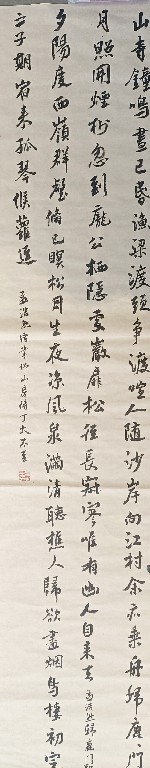 山寺鐘鳴晝已昏漁梁渡頭爭渡喧人隨沙岸向江村余亦乘舟歸鹿門
月照開煙樹忽到龐公栖隱處巖扉松徑長寂寥唯有幽人自來去 孟浩然歸鹿門
夕陽度西嶺群壑倏已暝松月生夜涼風泉滿清聽樵人歸欲盡烟鳥棲初定
之子期宿來孤琴候蘿逕 孟浩然宿業師山房待丁大不至